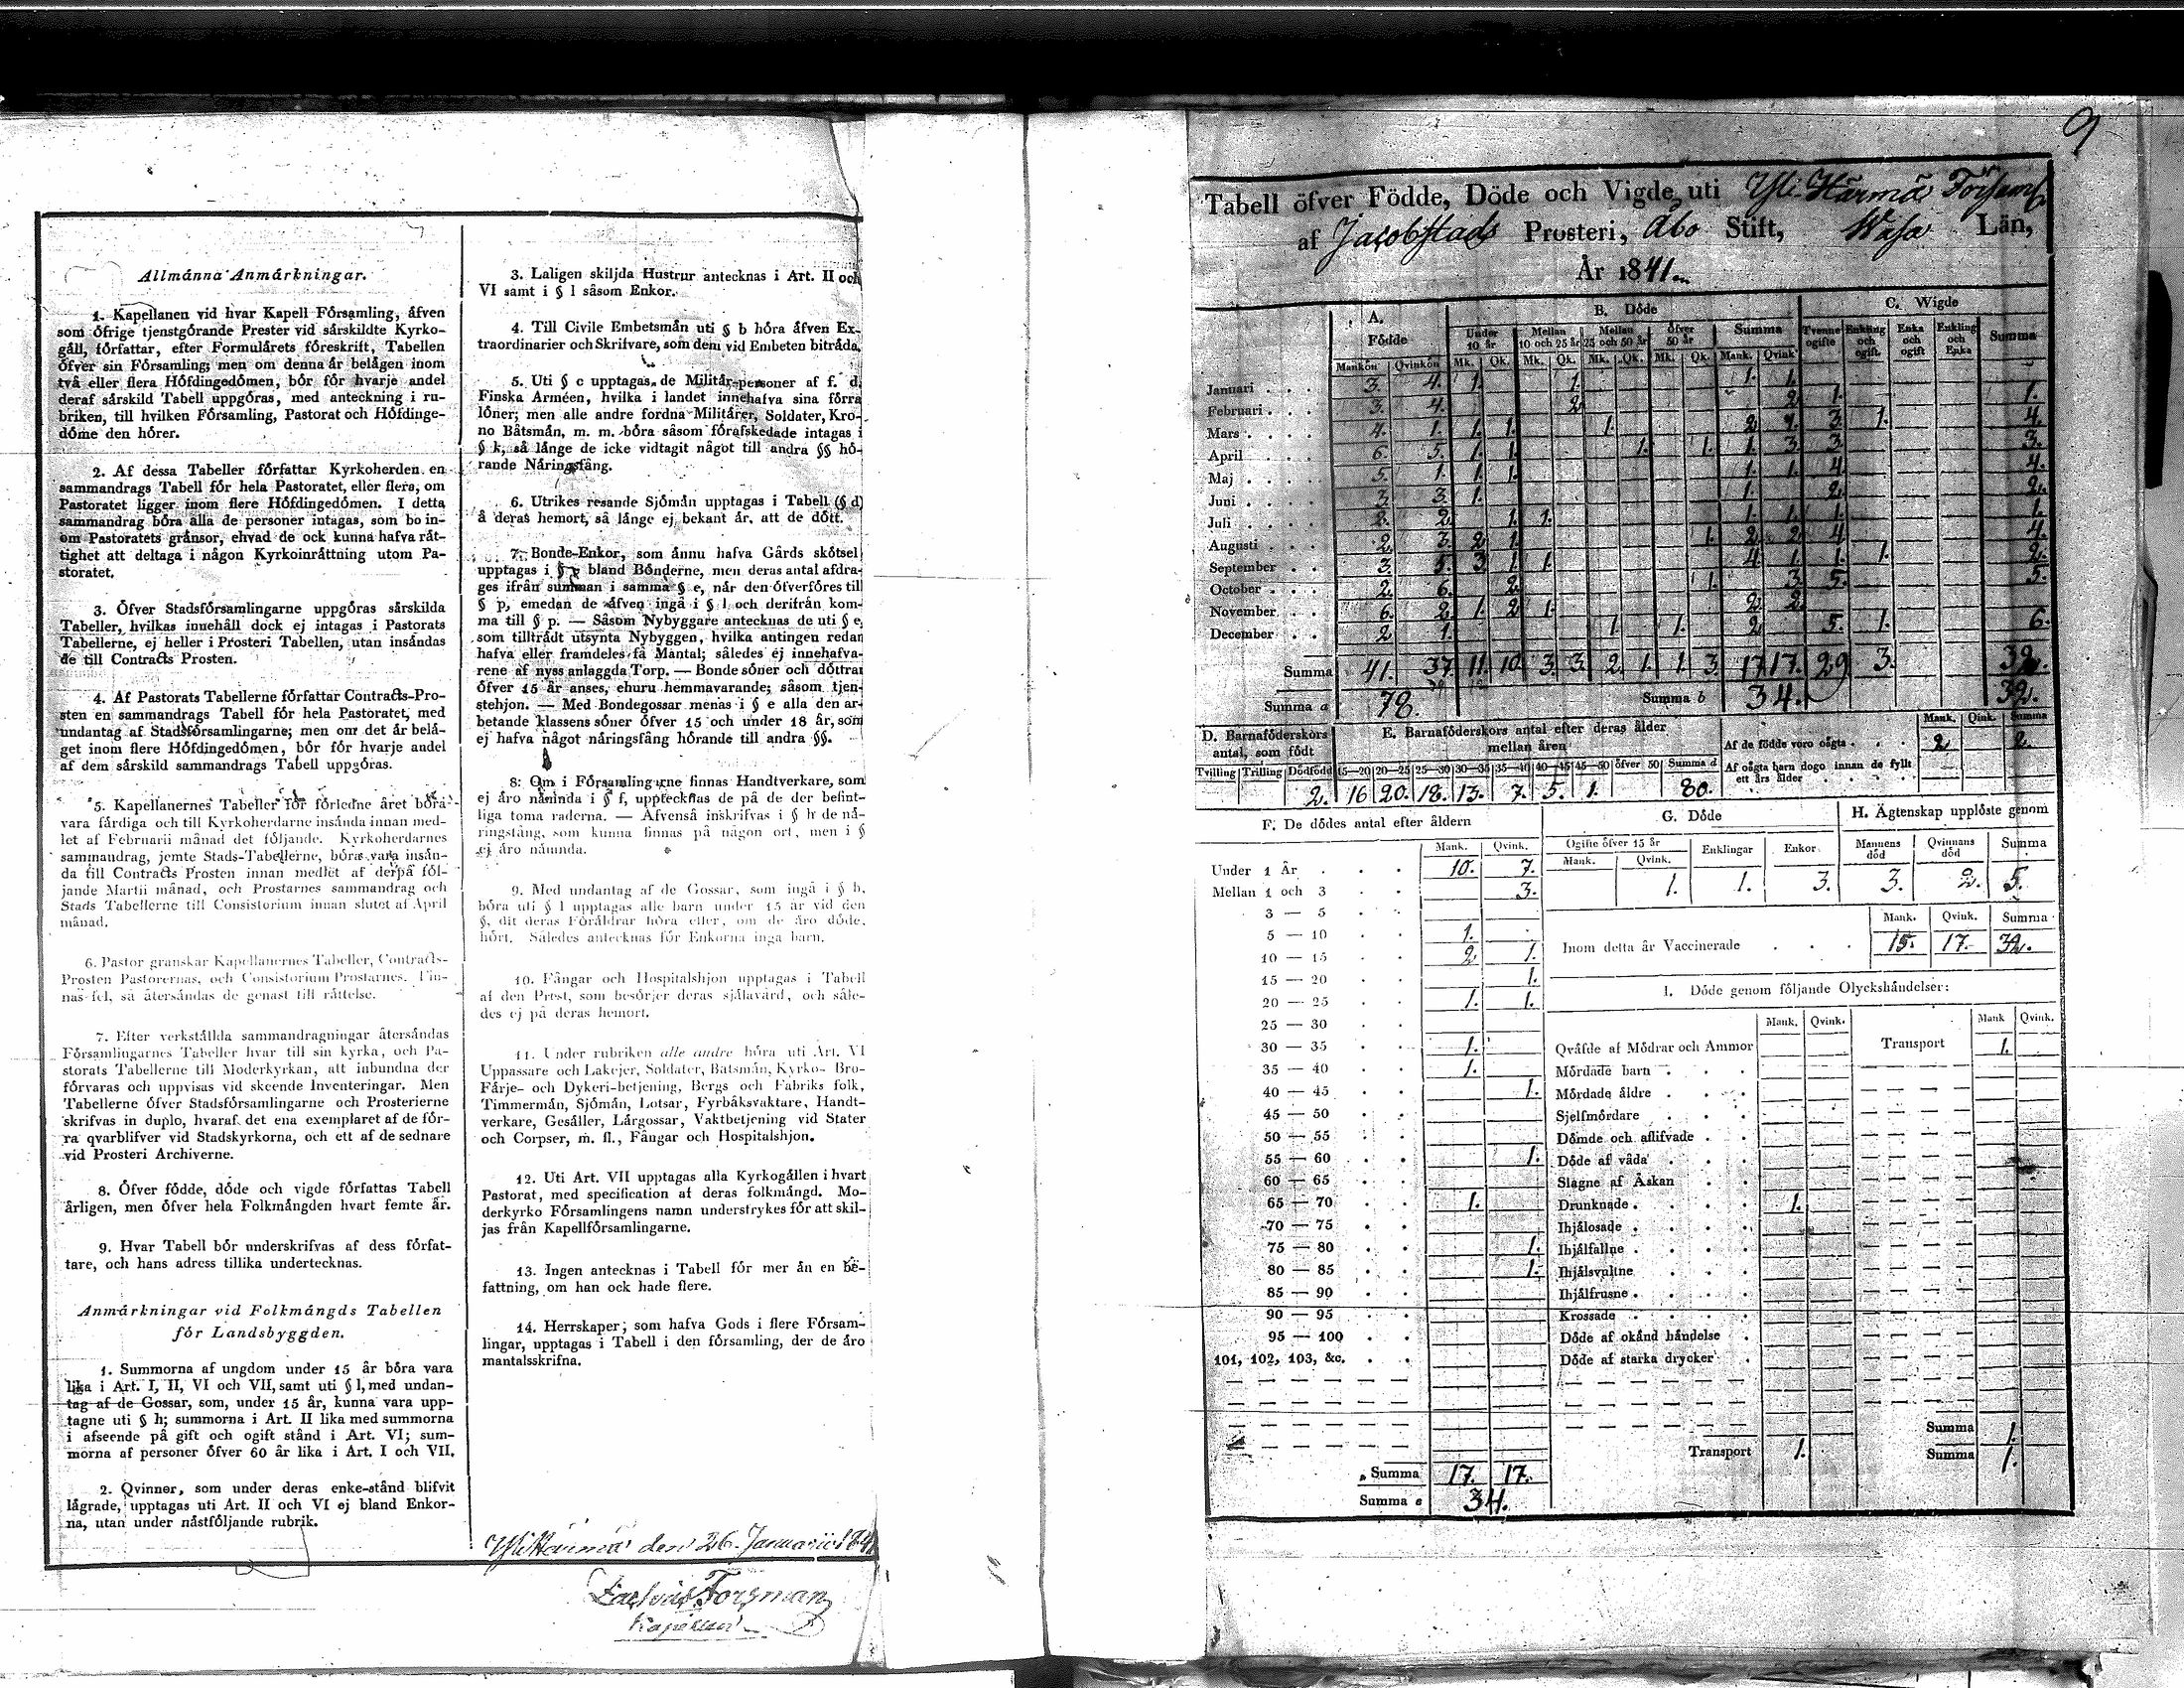 Allmånna Anmårkningar.
1. Kapellanen vid hvar Kapell Fórsamling, åfven
som ófrige tjenstgórande Prester vid sårskildte Kyrko-
gåll, fórfattar, efter Formulårets fóreskrift, Tabellen
ófver sin Fórsamling; men om denna år belågen inom
två eller flera Hófdingedómen, bór fór hvarje andel
deraf sårskild Tabell uppgóras, med anteckning i ru-
briken, till hvilken Fórsamling, Pastorat och Hófdinge-
dóme den hórer.
2. Af dessa Tabeller fórfattar Kyrkoherden en
sammandrags Tabell fór hela Pastoratet, eller flera, om
Pastoratet ligger inom flere Hófdingedómen. I detta
sammandrag bóra alla de personer intagas, som bo in-
om Pastoratets grånsor, ehvad de ock kunna hafva råt-
tighet att deltaga i någon Kyrkoinråttning utom Pa-
storatet.
3. Ófver Stadsfórsamlingarne uppgóras sårskilda
Tabeller, hvilkas innehåll dock ej intagas i Pastorats
Tabellerne, ej heller i Prosteri Tabellen, utan insåndas
de till Contracts Prosten.
4. Af Pastorats Tabellerne fórfattar Contracts-Pro-
sten en sammandrags Tabell fór hela Pastoratet, med
undantag af Stadsfórsamlingarne; men om det år belå-
get inom flere Hófdingedómen, bór fór hvarje andel
af dem sårskild sammandrags Tabell uppgóras.
5. Kapellanernes Tabeller fór fórledne året bóra
vara fårdiga och till Kyrkoherdarne insånda innan med-
let af Februarii månad det fóljande. Kyrkoherdarnes
sammandrag, jemte Stads-Tabellerne, bóra vara insån-
da till Contracts Prosten innan medlet af derpå fól-
jande Martii månad, och Prostarnes sammandrag och
Stads Tabellerne till Consistorium innan slutet af April
månad.
6. Pastor granskar Kapellanernes Tabeller, Contracts-
Prosten Pastorernas, och Consistorium Prostarnes. Fin-
nas fel, så återsåndas de genast till råttelse.
7. Efter verkstållda sammandragningar återsåndas
Fórsamlingarnes Tabeller hvar till sin kyrka, och Pa-
storats Tabellerne till Moderkyrkan, att inbundna der
fórvaras och uppvisas vid skeende Inventeringar. Men
Tabellerne ófver Stadsfórsamlingarne och Prosterierne
skrifvas in duplo, hvaraf det ena exemplaret af de fór-
ra qvarblifver vid Stadskyrkorna, och ett af de sednare
vid Prosteri Archiverne.
8. Ófver fódde, dóde och vigde fórfattas Tabell
årligen, men ófver hela Folkmångden hvart femte år.
9. Hvar Tabell bór underskrifvas af dess fórfat-
tare, och hans adress tillika undertecknas.
Anmårkningar vid Folkmångds Tabellen
fór Landsbyggden.
1. Summorna af ungdom under 15 år bóra vara
lika i Art. I, II, VI och VII, samt uti § l, med undan-
tag af de Gossar, som, under 15 år, kunna vara upp-
tagne uti § h; summorna i Art. II lika med summorna
i afseende på gift och ogift stånd i Art. VI; sum-
morna af personer ófver 60 år lika i Art. I och VII.
2. Qvinner, som under deras enke-stånd blifvit
lågrade, upptagas uti Art. II och VI ej bland Enkor-
na, utan under nåstfóljande rubrik.
3. Laligen skiljda Hustrur antecknas i Art. II och
VI samt i § l såsom Enkor.
4. Till Civile Embetsmån uti § b hóra åfven Ex-
traordinarier och Skrifvare, som dem vid Embeten bitråda.
5. Uti § c upptagas de Militår-personer af f. d.
Finska Arméen, hvilka i landet innehafva sina fórra
lóner; men alle andre fordna Militårer, Soldater, Kro-
no Båtsmån, m. m. bóra såsom fórafskedade intagas i
§ k, så långe de icke vidtagit något till andra §§ hó-
rande Nåringsfång.
6. Utrikes resande Sjómån upptagas i Tabell (§ d)
å deras hemort, så långe ej bekant år, att de dótt.
7. Bonde-Enkor, som ånnu hafva Gårds skótsel
upptagas i § e bland Bónderne, men deras antal afdra-
ges ifrån summan i samma § e, når den ófverfóres till
§ p, emedan de åfven ingå i § l och derifrån kom-
ma till § p. — Såsom Nybyggare antecknas de uti § e,
som tilltrådt utsynta Nybyggen, hvilka antingen redan
hafva eller framdeles få Mantal; således ej innehafva-
rene af nyss anlaggda Torp. — Bonde sóner och dóttrar
ófver 15 år anses, ehuru hemmavarande; såsom tjen-
stehjon. — Med Bondegossar menas i § e alla den ar-
betande klassens sóner ófver 15 och under 18 år, som
ej hafva något nåringsfång hórande till andra §§.
8. Om i Fórsamlingarne finnas Handtverkare, som
ej åro nåmnda i § f, upptecknas de på de der befint-
liga toma raderna. — Åfvenså inskrifvas i § h de nå-
ringsfång, som kunna finnas på någon ort, men i §
ej åro nåmnda.
9. Med undantag af de Gossar, som ingå i § h,
bóra uti § l upptagas alle barn under 15 år vid den
§, dit deras Fóråldrar hóra eller, om de åro dóde,
hórt. Således antecknas fór Enkorna inga barn.
10. Fångar och Hospitalshjon upptagas i Tabell
af den Prest, som besórjer deras sjålavård, och såle-
des ej på deras hemort.
11. Under rubriken alle andre hóra uti Art. VI
Uppassare och Lakejer, Soldater, Båtsmån, Kyrko- Bro-
Fårje- och Dykeri-betjening, Bergs och Fabriks folk,
Timmermån, Sjómån, Lotsar, Fyrbåksvaktare, Handt-
verkare, Gesåller, Lårgossar, Vaktbetjening vid Stater
och Corpser, m. fl., Fångar och Hospitalshjon.
12. Uti Art. VII upptagas alla Kyrkogållen i hvart
Pastorat, med specification af deras folkmångd. Mo-
derkyrko Fórsamlingens namn understrykes fór att skil-
jas från Kapellfórsamlingarne.
13. Ingen antecknas i Tabell fór mer ån en be-
fattning, om han ock hade flere.
14. Herrskaper, som hafva Gods i flere Fórsam-
lingar, upptagas i Tabell i den fórsamling, der de åro
mantalsskrifna.
Yli Härmä den 26. Januarii
Forsman
Kapellan
9
Tabell öfver Födde, Döde och Vigde uti Yli Härmä Församl.
af Jacobstads Prosteri, Åbo Stift, Wasa Län,
År 1841.
A. Födde B. Döde C. Wigde
Under 10 år Mellan 10 och 25 år Mellan 25 och 50 år Öfver 50 år Summa Tvenne ogifte Enkling och ogift Enka och ogift Enkling och Enka Summa
Mankön Qvinkön Mk. Qk. Mk. Qk. Mk. Qk. Mk. Qk. Mank. Qvink.
Januari 3. 4. 1. 1. 1. 1.
Februari 3. 4. 2. 2. 1. 1.
Mars 4. 1. 1. 1. 1. 2. 3. 1. 4.
April 6. 5. 1. 1. 1. 1. 1. 3. 3. 3.
Maj 5. 1. 1. 1. 1. 1. 4. 4.
Juni 3. 3. 1. 1. 2. 2.
Juli 2. 2. 1. 1. 1. 1. 1. 1.
Augusti 2. 3. 2. 1. 1. 2. 2. 4. 4.
September 3. 5. 3. 1. 1. 4. 1. 1. 1. 2.
October 2. 6. 2. 1. 3. 5. 5.
November 6. 2. 1. 2. 1. 2. 2.
December 2. 1. 1. 1. 2. 5. 1. 6.
Summa 41. 37. 11. 10. 3. 3. 2. 1. 1. 3. 17. 17. 29. 3. 32.
Summa a 78. Summa b 34. 32.
D. Barnaföderskors antal, som födt
Tvilling Trilling Dödfödd
2.
E. Barnaföderskors antal efter deras ålder mellan åren
15—20 20—25 25—30 30—35 35—40 40—45 45—50 öfver 50 Summa d
16 20. 18. 13. 7. 5. 1. 80.
Mank. Qink. Summa
Af de födde voro oägta 2. 2.
Af oägta barn dogo innan de fyllt
ett års ålder
F. De dódes antal efter åldern
Mank. Qvink.
Under 1 År 10. 7.
Mellan 1 och 3 3.
3 — 5
5 — 10 1.
10 — 15 2 1.
15 — 20 1.
20 — 25 1. 1.
25 — 30
30 — 35 1.
35 — 40 1.
40 — 45 1.
45 — 50
50 — 55
55 — 60 1.
60 — 65
65 — 70 1.
70 — 75
75 — 80 1.
80 — 85 1.
85 — 90
90 — 95
95 — 100
101, 102, 103, &c.
Summa 17. 17.
Summa e 34.
G. Dóde
Ogifte ófver 15 år Enklingar Enkor
Mank. Qvink.
1. 1. 3.
H. Ägtenskap upplóste genom
Mannens dód Qvinnans dód Summa
3. 2. 5.
Mank. Qvink. Summa
Inom detta år Vaccinerade 15. 17. 32.
I. Dóde genom fóljande Olyckshåndelser:
Mank. Qvink. Mank Qvink.
Qvåfde af Módrar och Ammor Transport 1.
Mórdade barn
Mórdade åldre
Sjelfmórdare
Dómde och aflifvade
Dóde af våda
Slagne af Åskan
Drunknade 1.
Ihjålosade
Ihjålfallne
Ihjålsvultne
Ihjålfrusne
Krossade
Dóde af okånd håndelse
Dóde af starka drycker
Summa 1.
Transport 1. Summa 1.